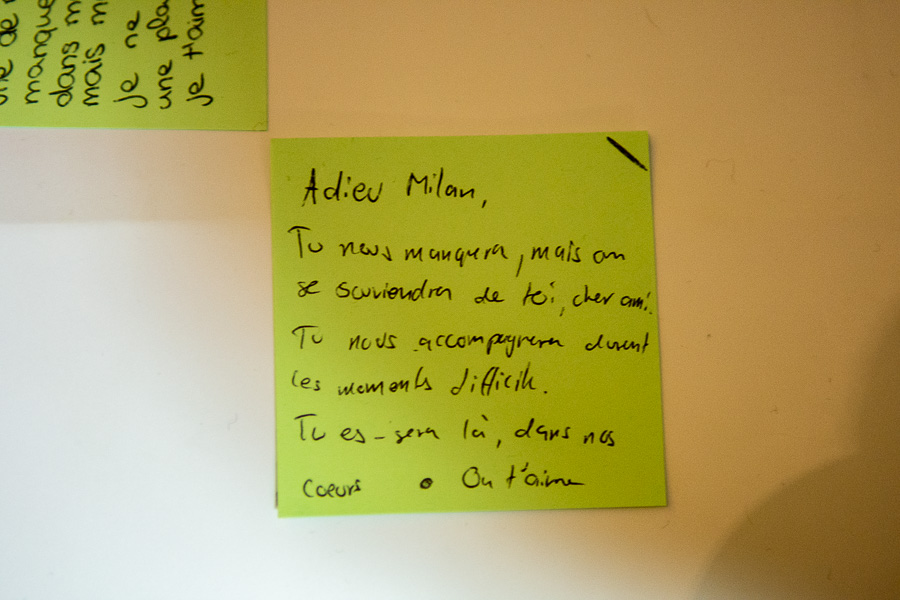 manque
dans m
mais m
je ne
une pla
je t'aim
Adieu Milan,
Tu nous manquera, mais on
se souviendra de toi, cher ami.
Tu nous accompagnera durant
les moments difficile.
Tu es-sera là, dans nos
coeurs • On t'aime